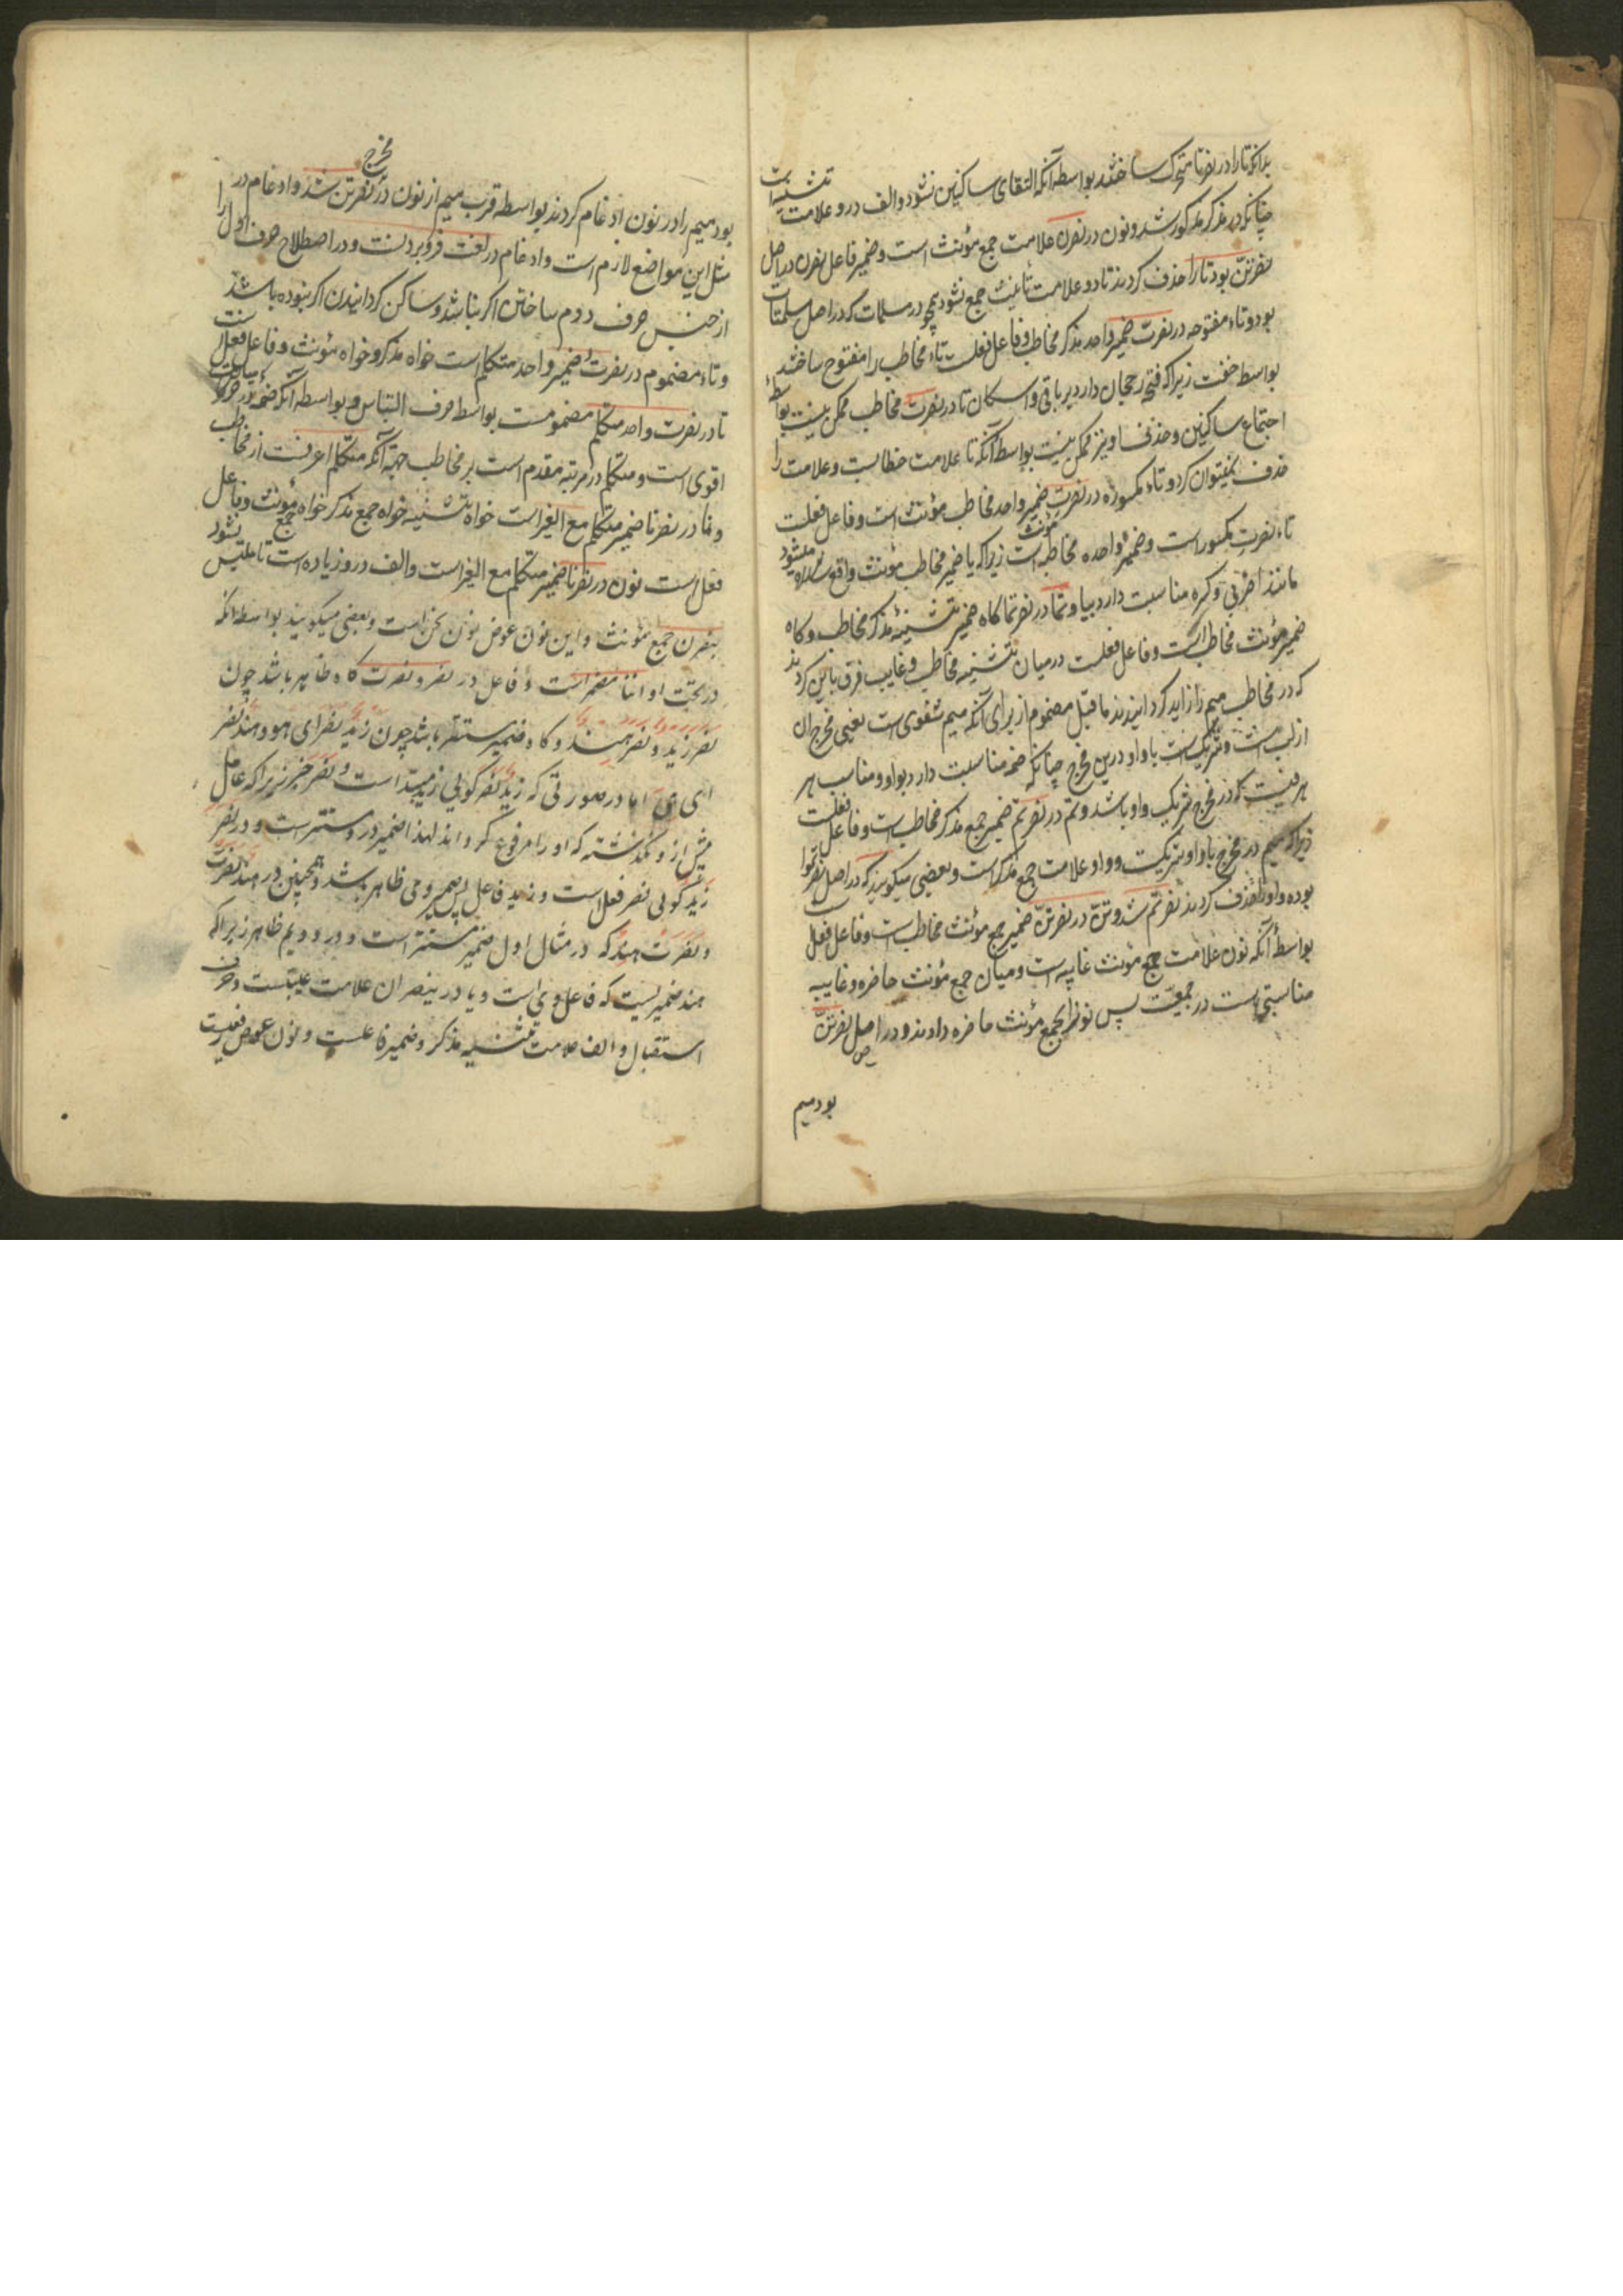 بدانکه تا را در نصرتا متحرک ساختند بواسطه آنکه التقای ساکنین نشود والف درو علامت تثنیه است
چنانکه در مذکر مذکور شد ونون در نصرن علامت جمع مؤنث است وضمیر فاعل نصرن در اصل
نصرتن بود تا را حذف کردند تا دو علامت تأنیث جمع نشود همچو در مسلمات که در اصل مسلمتات
بود وتاء مفتوحه در نصرت ضمیر واحد مذکر مخاطب وفاعل فعلست تاء مخاطب را مفتوح ساختند
بواسطه خفت زیرا که فتحه رحجان دارد بر باقی واسکان تا در نصرت مخاطب ممکن نیست بواسطهٔ
اجتماع ساکنین وحذف او نیز ممکن نیست بواسطه آنکه تا علامت خطابست وعلامت را
حذف نمیتوان کرد وتاء مکسوره در نصرت ضمیر واحد مخاطب مؤنث است وفاعل فعلست
تاء نصرت مکسور است وضمیر واحده مخاطبه مؤنث است زیرا که یا ضمیر مخاطب مؤنث واقع میشود
مانند اضربی وکسره مناسبت دارد بیا وتما در نصرتما کاه ضمیر تثنیهٔ مذکر مخاطب وکاه
ضمیر مؤنث مخاطب است وفاعل فعلست در میان تثنیه مخاطب وغایب فرق باین کردند
که در مخاطب میم را زاید کردانیدند ما قبل مضموم از برای آنکه میم شفوی است یعنی مخرج ان
از لب است وشریکست با واو درین مخرج چنانکه ضمه مناسبت دارد بواو ومناسب هر
حرفیست که در مخرج شریک واو باشد وتم در نصرتم ضمیر جمع مذکر مخاطب است وفاعل فعلست
زیرا که میم در مخرج با واو شریکست وواو علامت جمع مذکر است وبعضی میکویند که در اصل نصرتموا
بوده واو را حذف کردند نصرتم شد وتن در نصرتن ضمیر جمع مؤنث مخاطب است وفاعل فعل
بواسطهٔ آنکه نون علامت جمع مؤنث غایبه است ومیان جمع مؤنث حاضره وغایبه
مناسبتی هست در جمعیت پس نون را بجمع مؤنث حاضره دادند ودر اصل نصرتمن
بود میم
بود میم را در نون ادغام کردند بواسطه قرب میم از نون در مخرج نصرتن شد وادغام در
مثل این مواضع لازم است وادغام در لغت فرو بردنست ودر اصطلاح حرف اول را
از جنس حرف دوم ساختن اکر نباشد وساکن کردانیدن اکر نبوده باشد
وتاء مضموم در نصرت ضمیر واحد متکلم است خواه مذکر وخواه مؤنث وفاعل فعل است
تا در نصرت واحد متکلم مضمومست بواسطه خوف التباس وبواسطه آنکه ضمه در حرکات
اقوی است ومتکلم در مرتبه مقدم است بر مخاطب جهة آنکه متکلم اعرفست از مخاطب
ونا در نصرنا ضمیر متکلم مع الغیر است خواه تثنیه خواه جمع مذکر خواه جمع مؤنث وفاعل
فعل است نون در نصرنا ضمیر متکلم مع الغیر است والف درو زیاده است تا ملتبس نشود
بنصرن جمع مؤنث واین نون عوض نون نحن است وبعضی میکویند بواسطه انکه
در تحت او اننا مضمر است وفاعل در نصر ونصرت کاه ظاهر باشد چون
نصر زید ونصر هند وکاه ضمیر مستتر باشد چون زید نصر ای هو وهند نصر
ای هی اما در صورتی که زید نصر کوئی زید مبتداست ونصر خبر زیرا که عامل
پیش از و نکذشته که او را مرفوع کرداند لهذا ضمیر در ومستتر است ودر نصر
زید کوئی نصر فعل است وزید فاعل پس ضمیر وی ظاهر باشد وهمچنین در هند نصرت
ونصرت هند که در مثال اول ضمیر مستتر است ودر دویم ظاهر زیرا که
هند ضمیریست که فاعل وی است ویا در ینصران علامت غیبتست وحرف
استقبال والف علامت تثنیه مذکر وضمیر فاعلست ونون عوض رفعیست